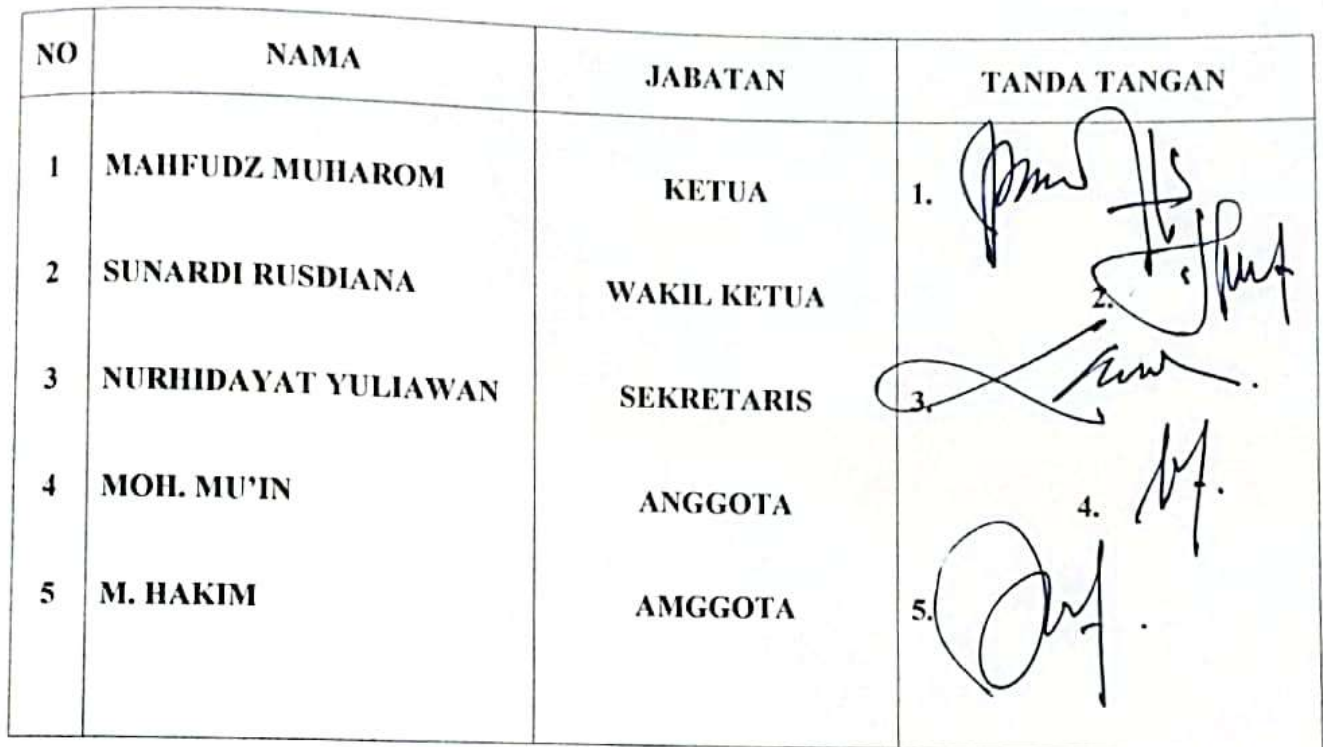 NO NAMA JABATAN TANDA TANGAN
1 MAHFUDZ MUHAROM KETUA 1.
2 SUNARDI RUSDIANA WAKIL KETUA 2.
3 NURHIDAYAT YULIAWAN SEKRETARIS 3.
4 MOH. MU'IN ANGGOTA 4.
5 M. HAKIM AMGGOTA 5.